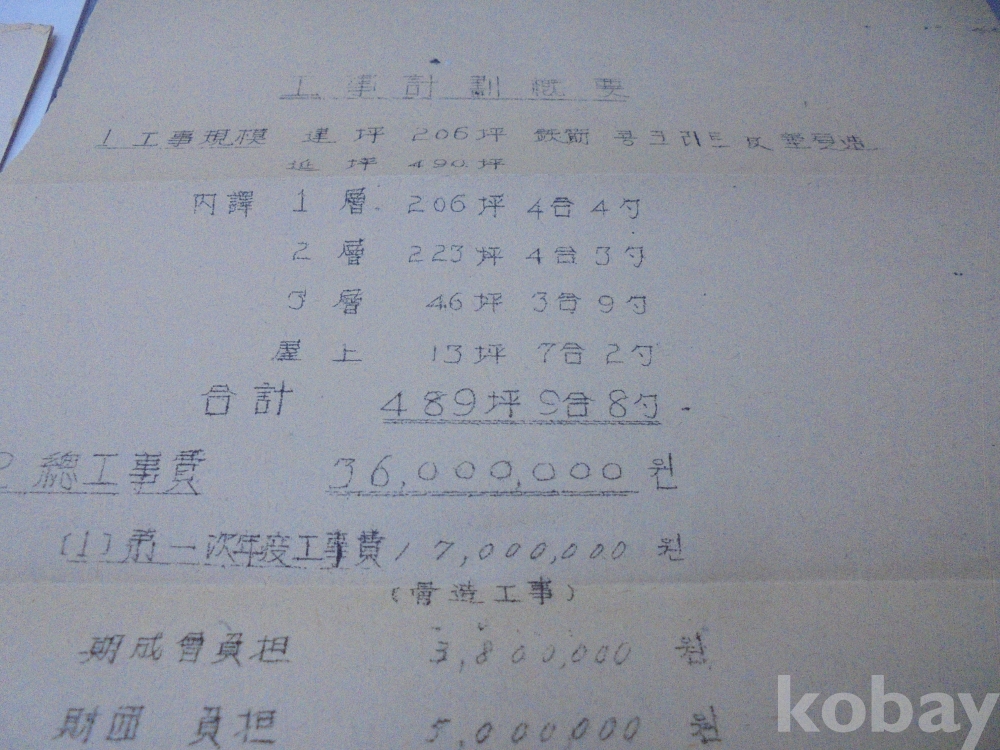 工事計劃概要
1 工事規模 建坪 206坪 鉄筋 콩크리트 及
延坪 490坪
内譯 1層 206坪 4合 4勺
2層 223坪 4合 3勺
3層 46坪 3合 9勺
屋上 13坪 7合 2勺
合計 489坪 9合 8勺
2 總工事費 36,000,000 원
(1) 第一次年度工事費 17,000,000 원
(骨造工事)
期成會負担 3,800,000 원
財団 負担 5,000,000 원
kobay